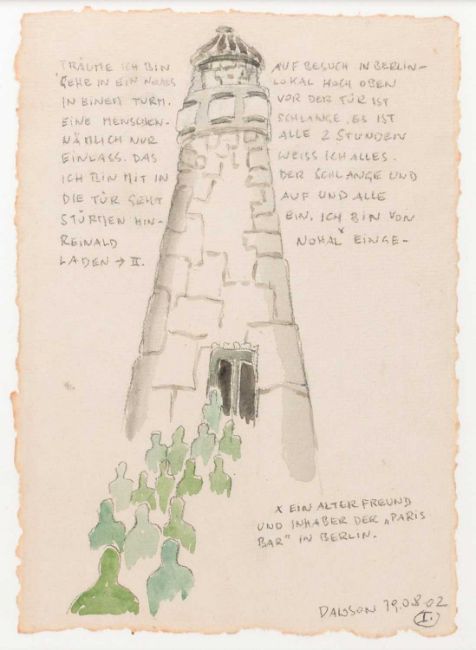 TRÄUME ICH BIN AUF BESUCH IN BERLIN-
GEHE IN EIN NEUES LOKAL HOCH OBEN
IN EINEM TURM. VOR DER TÜR IST
EINE MENSCHEN- SCHLANGE. ES IST
NÄMLICH NUR ALLE 2 STUNDEN
EINLASS. DAS WEISS ICH ALLES.
ICH BIN MIT IN DER SCHLANGE UND
DIE TÜR GEHT AUF UND ALLE
STÜRMEN HIN- EIN. ICH BIN VON
REINALD NOHAL x EINGE-
LADEN → II.
x EIN ALTER FREUND
UND INHABER DER „PARIS
BAR" IN BERLIN.
19.08.02
I.